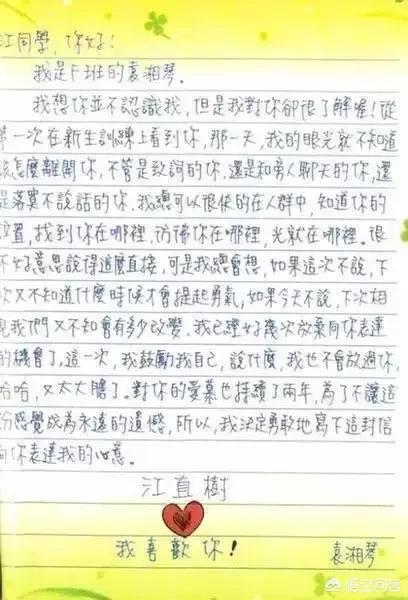 江同學，你好！
我是F班的袁湘琴。
我想你並不認識我，但是我對你卻很了解喔！從
第一次在新生訓練上看到你，那一天，我的眼光就不知道
該怎麼離開你，不管是致詞的你，還是和旁人聊天的你，還
是落寞不說話的你，我總可以很快的在人群中，知道你的
位置，找到你在哪裡，彷彿你在哪裡，光就在哪裡。很
不好意思說得這麼直接，可是我總會想，如果這次不說，下
次又不知道什麼時候才會提起勇氣，如果今天不說，下次相
見我們又不知會有多少改變。我已經好幾次放棄向你表達
的機會了，這一次，我鼓勵我自己，說什麼，我也不會放過你，
哈哈，又太大膽了。對你的愛慕也持續了兩年，為了不讓這
份感覺成為永遠的遺憾，所以，我決定勇敢地寫下這封信
向你表達我的心意。
江直樹
我喜歡你！
袁湘琴
悟空问答